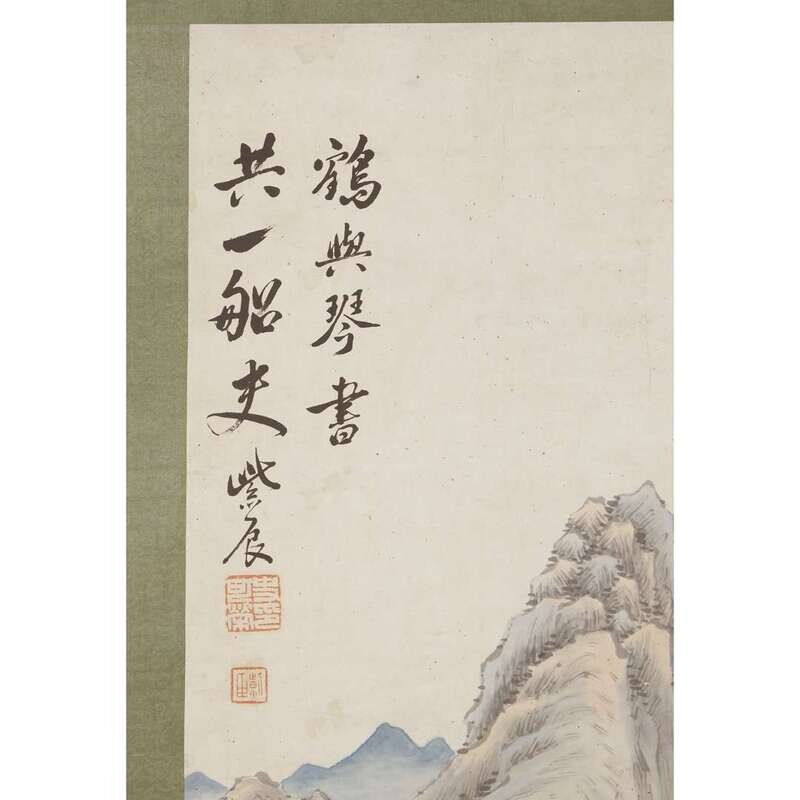 鶴與琴書
共一船史紫辰